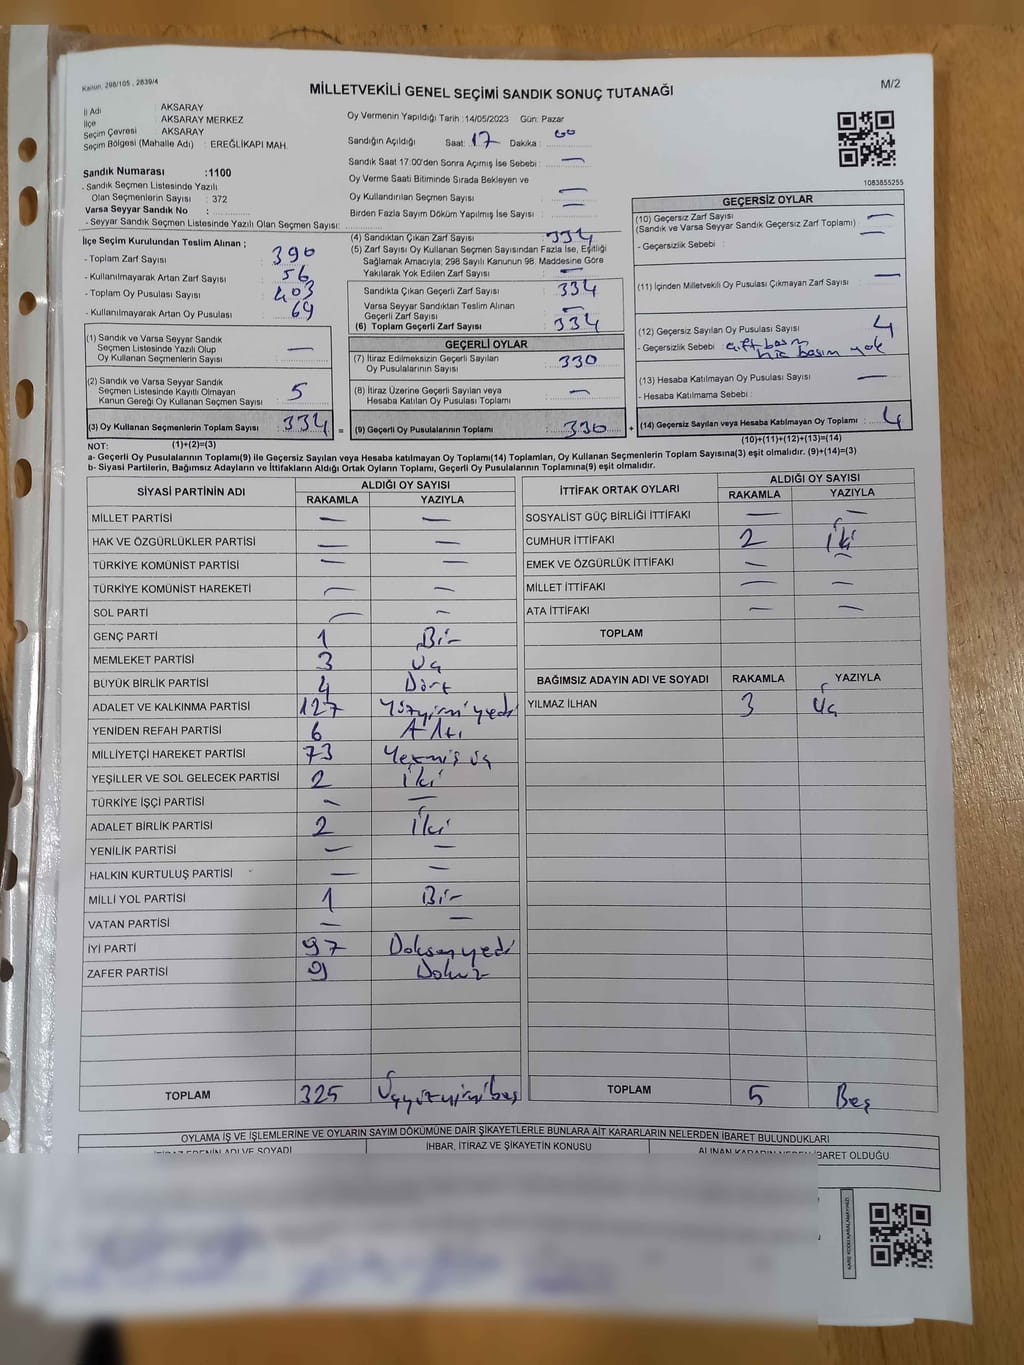 Kanun. 298/105 , 2839/4
M/2
MİLLETVEKİLİ GENEL SEÇİMİ SANDIK SONUÇ TUTANAĞI
İl Adı : AKSARAY
İlçe : AKSARAY MERKEZ
Seçim Çevresi : AKSARAY
Seçim Bölgesi (Mahalle Adı) : EREĞLİKAPI MAH.
Sandık Numarası :1100
- Sandık Seçmen Listesinde Yazılı
Olan Seçmenlerin Sayısı : 372
Varsa Seyyar Sandık No :
- Seyyar Sandık Seçmen Listesinde Yazılı Olan Seçmen Sayısı:
Oy Vermenin Yapıldığı Tarih :14/05/2023 Gün: Pazar
Sandığın Açıldığı Saat: 17 Dakika : 00
Sandık Saat 17:00'den Sonra Açımış İse Sebebi : —
Oy Verme Saati Bitiminde Sırada Bekleyen ve
Oy Kullandırılan Seçmen Sayısı : —
Birden Fazla Sayım Döküm Yapılmış İse Sayısı : —
1083855255
İlçe Seçim Kurulundan Teslim Alınan ;
- Toplam Zarf Sayısı : 390
- Kullanılmayarak Artan Zarf Sayısı : 56
- Toplam Oy Pusulası Sayısı : 403
- Kullanılmayarak Artan Oy Pusulası : 69
(1) Sandık ve Varsa Seyyar Sandık
Seçmen Listesinde Yazılı Olup
Oy Kullanan Seçmenlerin Sayısı : —
(2) Sandık ve Varsa Seyyar Sandık
Seçmen Listesinde Kayıtlı Olmayan
Kanun Gereği Oy Kullanan Seçmen Sayısı : 5
(3) Oy Kullanan Seçmenlerin Toplam Sayısı : 334 =
(4) Sandıktan Çıkan Zarf Sayısı : 334
(5) Zarf Sayısı Oy Kullanan Seçmen Sayısından Fazla İse, Eşitliği
Sağlamak Amacıyla; 298 Sayılı Kanunun 98. Maddesine Göre
Yakılarak Yok Edilen Zarf Sayısı : —
Sandıkta Çıkan Geçerli Zarf Sayısı : 334
Varsa Seyyar Sandıktan Teslim Alınan
Geçerli Zarf Sayısı : —
(6) Toplam Geçerli Zarf Sayısı : 334
GEÇERLİ OYLAR
(7) İtiraz Edilmeksizin Geçerli Sayılan
Oy Pusulalarının Sayısı : 330
(8) İtiraz Üzerine Geçerli Sayılan veya
Hesaba Katılan Oy Pusulası Toplamı : —
(9) Geçerli Oy Pusulalarının Toplamı : 330 +
GEÇERSİZ OYLAR
(10) Geçersiz Zarf Sayısı : —
(Sandık ve Varsa Seyyar Sandık Geçersiz Zarf Toplamı) : —
- Geçersizlik Sebebi :
(11) İçinden Milletvekili Oy Pusulası Çıkmayan Zarf Sayısı : —
(12) Geçersiz Sayılan Oy Pusulası Sayısı : 4
- Geçersizlik Sebebi : çift basım
hiç basım yok
(13) Hesaba Katılmayan Oy Pusulası Sayısı : —
- Hesaba Katılmama Sebebi :
(14) Geçersiz Sayılan veya Hesaba Katılmayan Oy Toplamı : 4
NOT: (1)+(2)=(3)
(10)+(11)+(12)+(13)=(14)
a- Geçerli Oy Pusulalarının Toplamı(9) ile Geçersiz Sayılan veya Hesaba katılmayan Oy Toplamı(14) Toplamları, Oy Kullanan Seçmenlerin Toplam Sayısına(3) eşit olmalıdır. (9)+(14)=(3)
b- Siyasi Partilerin, Bağımsız Adayların ve İttifakların Aldığı Ortak Oyların Toplamı, Geçerli Oy Pusulalarının Toplamına(9) eşit olmalıdır.
SİYASİ PARTİNİN ADI ALDIĞI OY SAYISI
RAKAMLA YAZIYLA
MİLLET PARTİSİ — —
HAK VE ÖZGÜRLÜKLER PARTİSİ — —
TÜRKİYE KOMÜNİST PARTİSİ — —
TÜRKİYE KOMÜNİST HAREKETİ — —
SOL PARTİ — —
GENÇ PARTİ 1 Bir
MEMLEKET PARTİSİ 3 Üç
BÜYÜK BİRLİK PARTİSİ 4 Dört
ADALET VE KALKINMA PARTİSİ 127 Yüzyirmiyedi
YENİDEN REFAH PARTİSİ 6 Altı
MİLLİYETÇİ HAREKET PARTİSİ 73 Yetmiş üç
YEŞİLLER VE SOL GELECEK PARTİSİ 2 İki
TÜRKİYE İŞÇİ PARTİSİ — —
ADALET BİRLİK PARTİSİ 2 İki
YENİLİK PARTİSİ — —
HALKIN KURTULUŞ PARTİSİ — —
MİLLİ YOL PARTİSİ 1 Bir
VATAN PARTİSİ — —
İYİ PARTİ 97 Doksanyedi
ZAFER PARTİSİ 9 Dokuz
TOPLAM 325 Üçyüzyirmibeş
İTTİFAK ORTAK OYLARI ALDIĞI OY SAYISI
RAKAMLA YAZIYLA
SOSYALİST GÜÇ BİRLİĞİ İTTİFAKI — —
CUMHUR İTTİFAKI 2 İki
EMEK VE ÖZGÜRLÜK İTTİFAKI — —
MİLLET İTTİFAKI — —
ATA İTTİFAKI — —
TOPLAM
BAĞIMSIZ ADAYIN ADI VE SOYADI RAKAMLA YAZIYLA
YILMAZ İLHAN 3 Üç
TOPLAM 5 Beş
OYLAMA İŞ VE İŞLEMLERİNE VE OYLARIN SAYIM DÖKÜMÜNE DAİR ŞİKAYETLERLE BUNLARA AİT KARARLARIN NELERDEN İBARET BULUNDUKLARI
İTİRAZ EDENİN ADI VE SOYADI İHBAR, İTİRAZ VE ŞİKAYETİN KONUSU ALINAN KARARIN NEDEN İBARET OLDUĞU